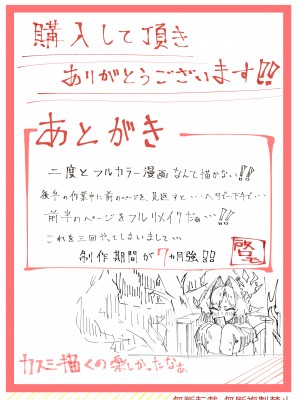 購入して頂き
ありがとうございます!!
あとがき
二度とフルカラー漫画なんて描かない!!
後半の作業中に前のページを見返すと・・・ヘタピー下手で・・・
前半のページをフルリメイクだぁ・・・!!
これを三回やってしまいまして・・・
制作期間が7ヵ月強!!
カスミ描くの楽しかったなぁ
無断転載・無断複製禁止